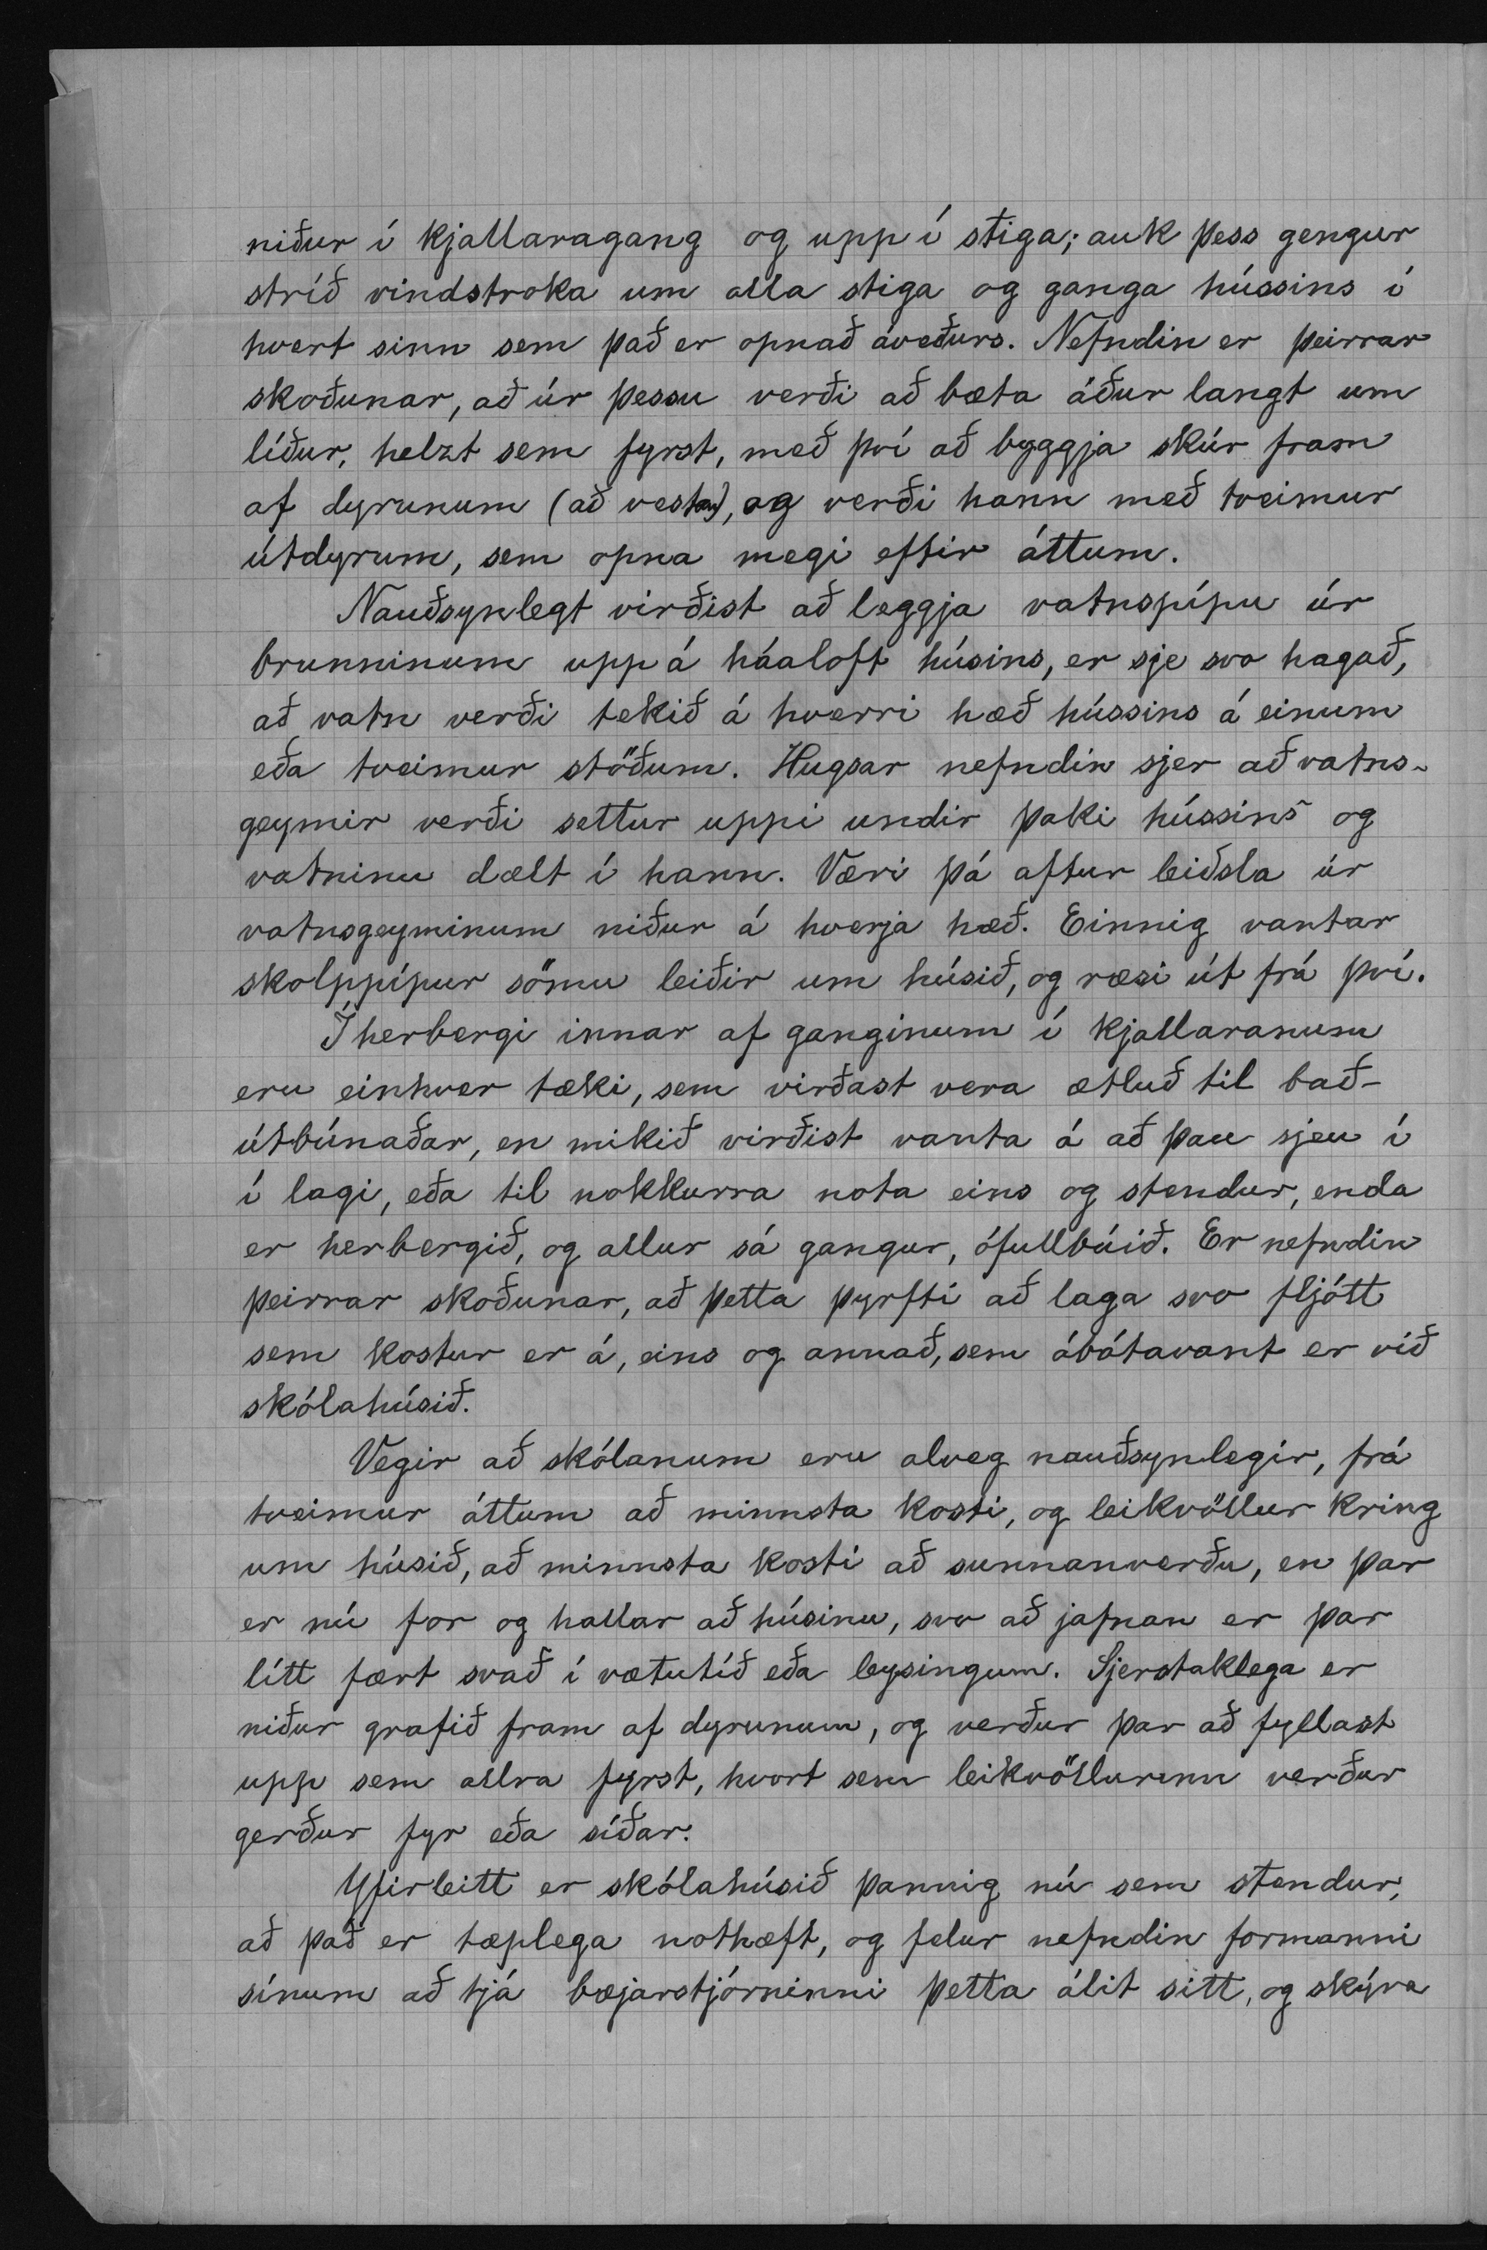 niður í kjallaragang og upp í stiga; auk þess gengur
stríð vindstroka um alla stiga og ganga hússins í
hvert sinn sem það er opnað áveðurs. Nefndin er þeirrar
skoðunar, að úr þessu verði að bæta áður langt um
líður, helzt sem fyrst, með því að byggja skúr fram
af dyrunum (að vestan), og verði hann með tveimur
útdyrum, sem opna megi eftir áttum.
Nauðsynlegt virðist að leggja vatnspípu úr
brunninum upp á háaloft húsins, er sje svo hagað,
að vatn verði tekið á hverri hæð hússins á einum
eða tveimur stöðum. Hugsar nefndin sjer að vatns-
geymir verði settur uppi undir þaki hússins og
vatninu dælt í hann. Væri þá aftur leiðsla úr
vatnsgeyminum niður á hverja hæð. Einnig vantar
skolppípur sömu leiðir um húsið, og ræsi út frá því.
Í herbergi innar af ganginum í kjallaranum
eru einhver tæki, sem virðast vera ætluð til bað-
útbúnaðar, en mikið virðist vanta á að þau sjeu í
í lagi, eða til nokkurra nota eins og stendur, enda
er herbergið, og allur sá gangur, ófullbúið. Er nefndin
þeirrar skoðunar, að þetta þyrfti að laga svo fljótt
sem kostur er á, eins og annað, sem ábótavant er við
skólahúsið.
Vegir að skólanum eru alveg nauðsynlegir, frá
tveimur áttum að minnsta kosti, og leikvöllur kring
um húsið, að minnsta kosti að sunnanverðu, en þar
er nú for og hallar að húsinu, svo að jafnan er þar
lítt fært svað í vætutíð eða leysingum. Sjerstaklega er
niður grafið fram af dyrunum, og verður þar að fyllast
upp sem allra fyrst, hvort sem leikvöllurinn verður
gerður fyr eða síðar.
Yfirleitt er skólahúsið þannig nú sem stendur,
að það er tæplega nothæft, og felur nefndin formanni
sínum að tjá bæjarstjórninni þetta álit sitt, og skýra